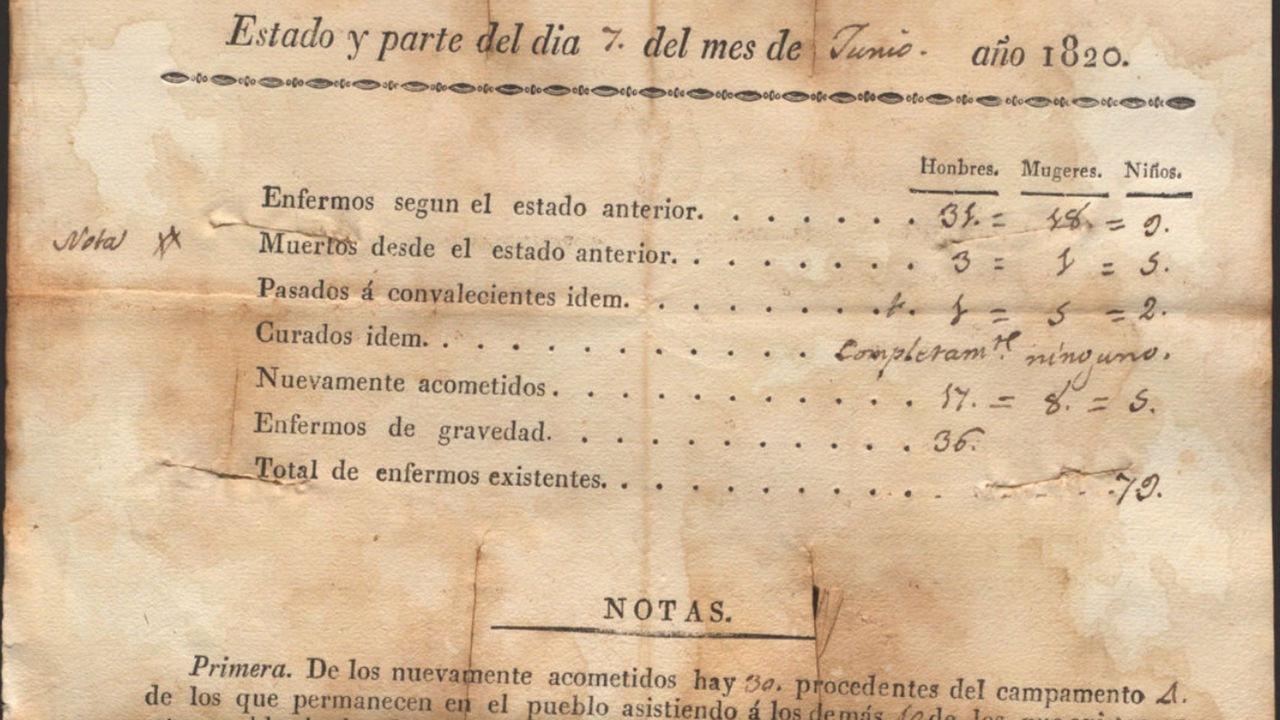 Estado y parte del dia 7. del mes de Junio. año 1820.
Honbres. Mugeres. Niños.
Enfermos segun el estado anterior. . . . . . . 31. = 18. = 9.
Nota
Muertos desde el estado anterior. . . . . . . . 3 = 1 = 5.
Pasados á convalecientes idem. . . . . . . . 1 = 5 = 2.
Curados idem. . . . . . . . . . . . completam.te ninguno.
Nuevamente acometidos. . . . . . . . . . . 17. = 8. = 5.
Enfermos de gravedad. . . . . . . . . . . 36.
Total de enfermos existentes. . . . . . . . . . . . 79.
NOTAS.
Primera. De los nuevamente acometidos hay 30. procedentes del campamento 4.
de los que permanecen en el pueblo asistiendo á los demás de los que